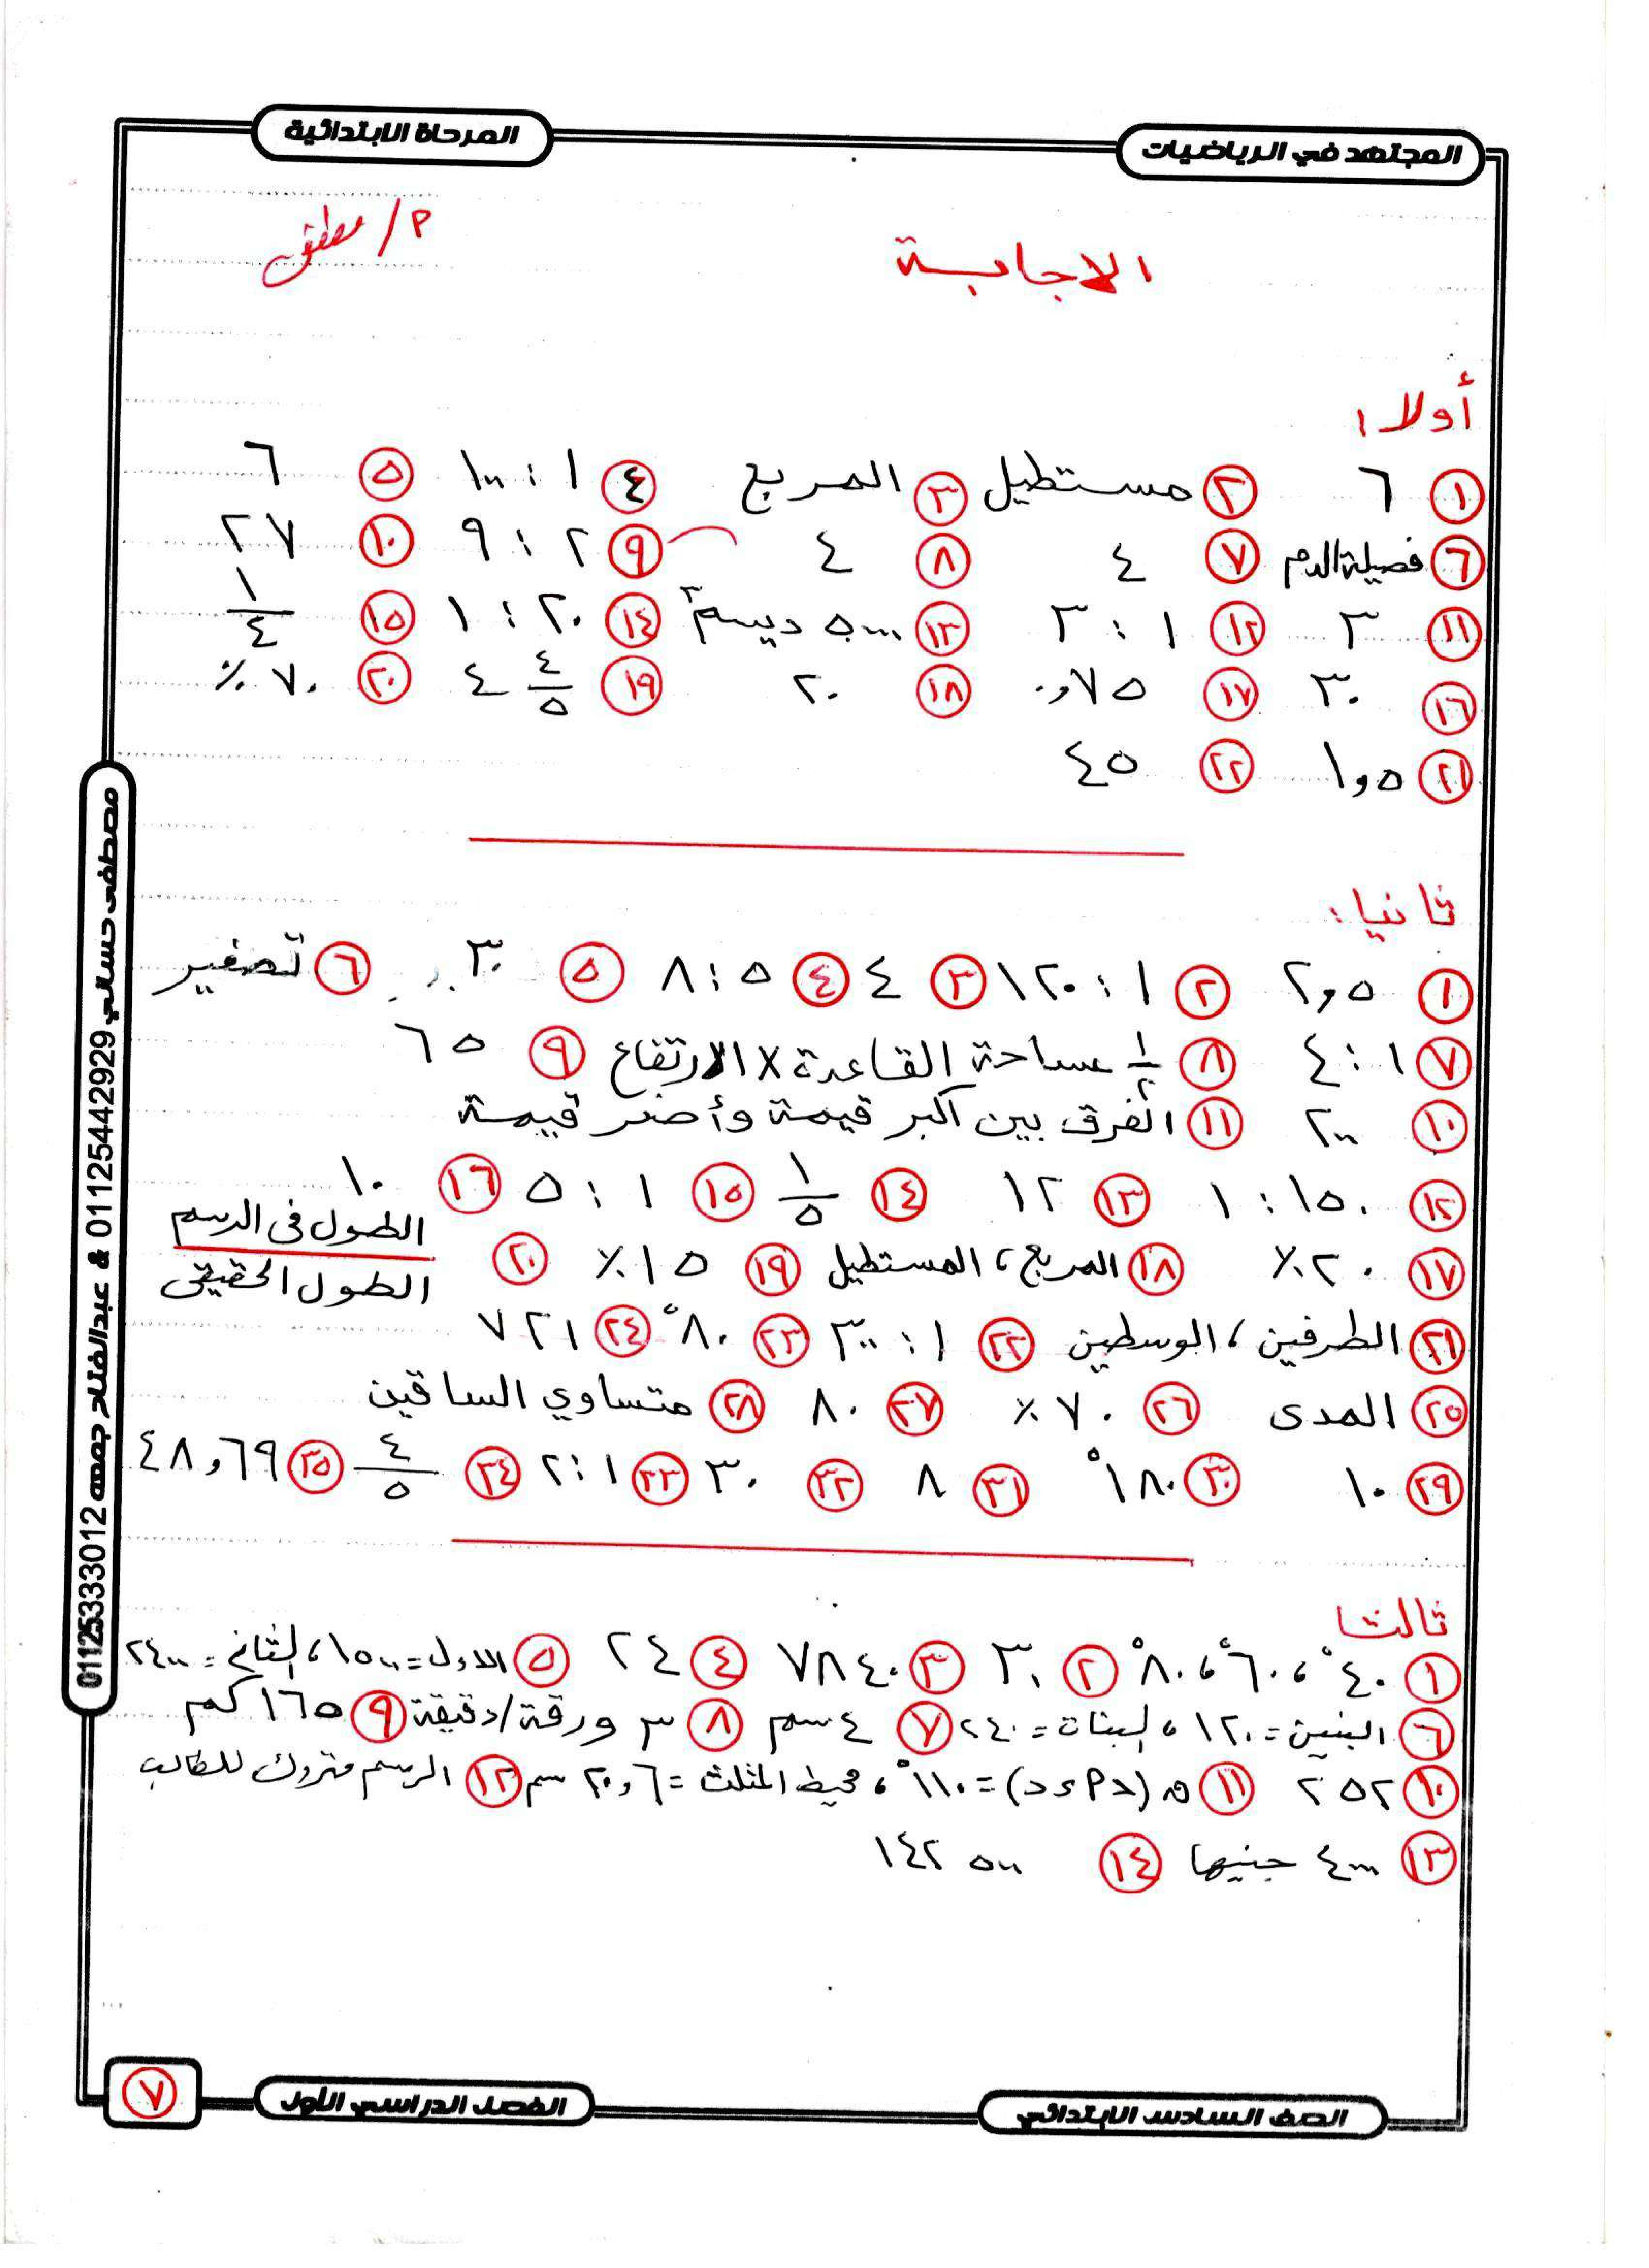 المجتهد في الرياضيات
المرحلة الابتدائية
م/ مصطفى
الاجابة
أولا:
١ ٦ ٢ مستطيل ٣ المربع ٤ ١ : ١٠٠ ٥ ٦
٦ فصيلة الدم ٧ ٤ ٨ ٤ ٩ ٢ : ٩ ١٠ ٢٧
١١ ٣ ١٢ ١ : ٣ ١٣ ٥٠٠٠ ديسم٣ ١٤ ٢٠ : ١ ١٥ ١/٤
١٦ ٣٠ ١٧ ٠,٧٥ ١٨ ٢٠ ١٩ ٤ ٤/٥ ٢٠ ٧٠ ٪
٢١ ١,٥ ٢٢ ٤٥
ثانيا:
١ ٢,٥ ٢ ١ : ١٢٠ ٣ ٤ ٤ ٥ : ٨ ٥ ٣٠ ٦ تصغير
٧ ١ : ٤ ٨ ١/٢ مساحة القاعدة × الارتفاع ٩ ٦٥
١٠ ٢٠٠ ١١ الفرق بين أكبر قيمة وأصغر قيمة
١٢ ١٥٠ : ١ ١٣ ١٢ ١٤ ١/٥ ١٥ ١ : ٥ ١٦ ١٠
١٧ ٢٠ ٪ ١٨ المربع ، المستطيل ١٩ ١٥ ٪ ٢٠ الطول فى الرسم / الطول الحقيقى
٢١ الطرفين ، الوسطين ٢٢ ١ : ٣٠٠ ٢٣ ٨٠° ٢٤ ٧٢١
٢٥ المدى ٢٦ ٧٠ ٪ ٢٧ ٨٠ ٢٨ متساوي الساقين
٢٩ ١٠ ٣٠ ١٨٠° ٣١ ٨ ٣٢ ٣٠ ٣٣ ١ : ٢ ٣٤ ٤/٥ ٣٥ ٤٨,٦٩
ثالثا
١ ٤٠° ، ٦٠° ، ٨٠° ٢ ٣٠ ٣ ٧٨٤٠ ٤ ٢٤ ٥ الاول = ١٥٠٠ ، الثانى = ٢٤٠٠
٦ البنين = ١٢٠ ، البنات = ٢٤٠ ٧ ٤ سم ٨ ٣ ورقة / دقيقة ٩ ١٦٥ كم
١٠ ٢٥٢ ١١ = ١١٠° ، محيط المثلث = ٢٠,٦ سم ١٢ الرسم متروك للطالب
١٣ ٤٠٠٠ جنيها ١٤ ١٤٢٥٠٠
مصطفى حسالي 01125442929 & عبدالفتاح جمعه 01125333012
الصف السادس الابتدائي
الفصل الدراسي الأول
٧